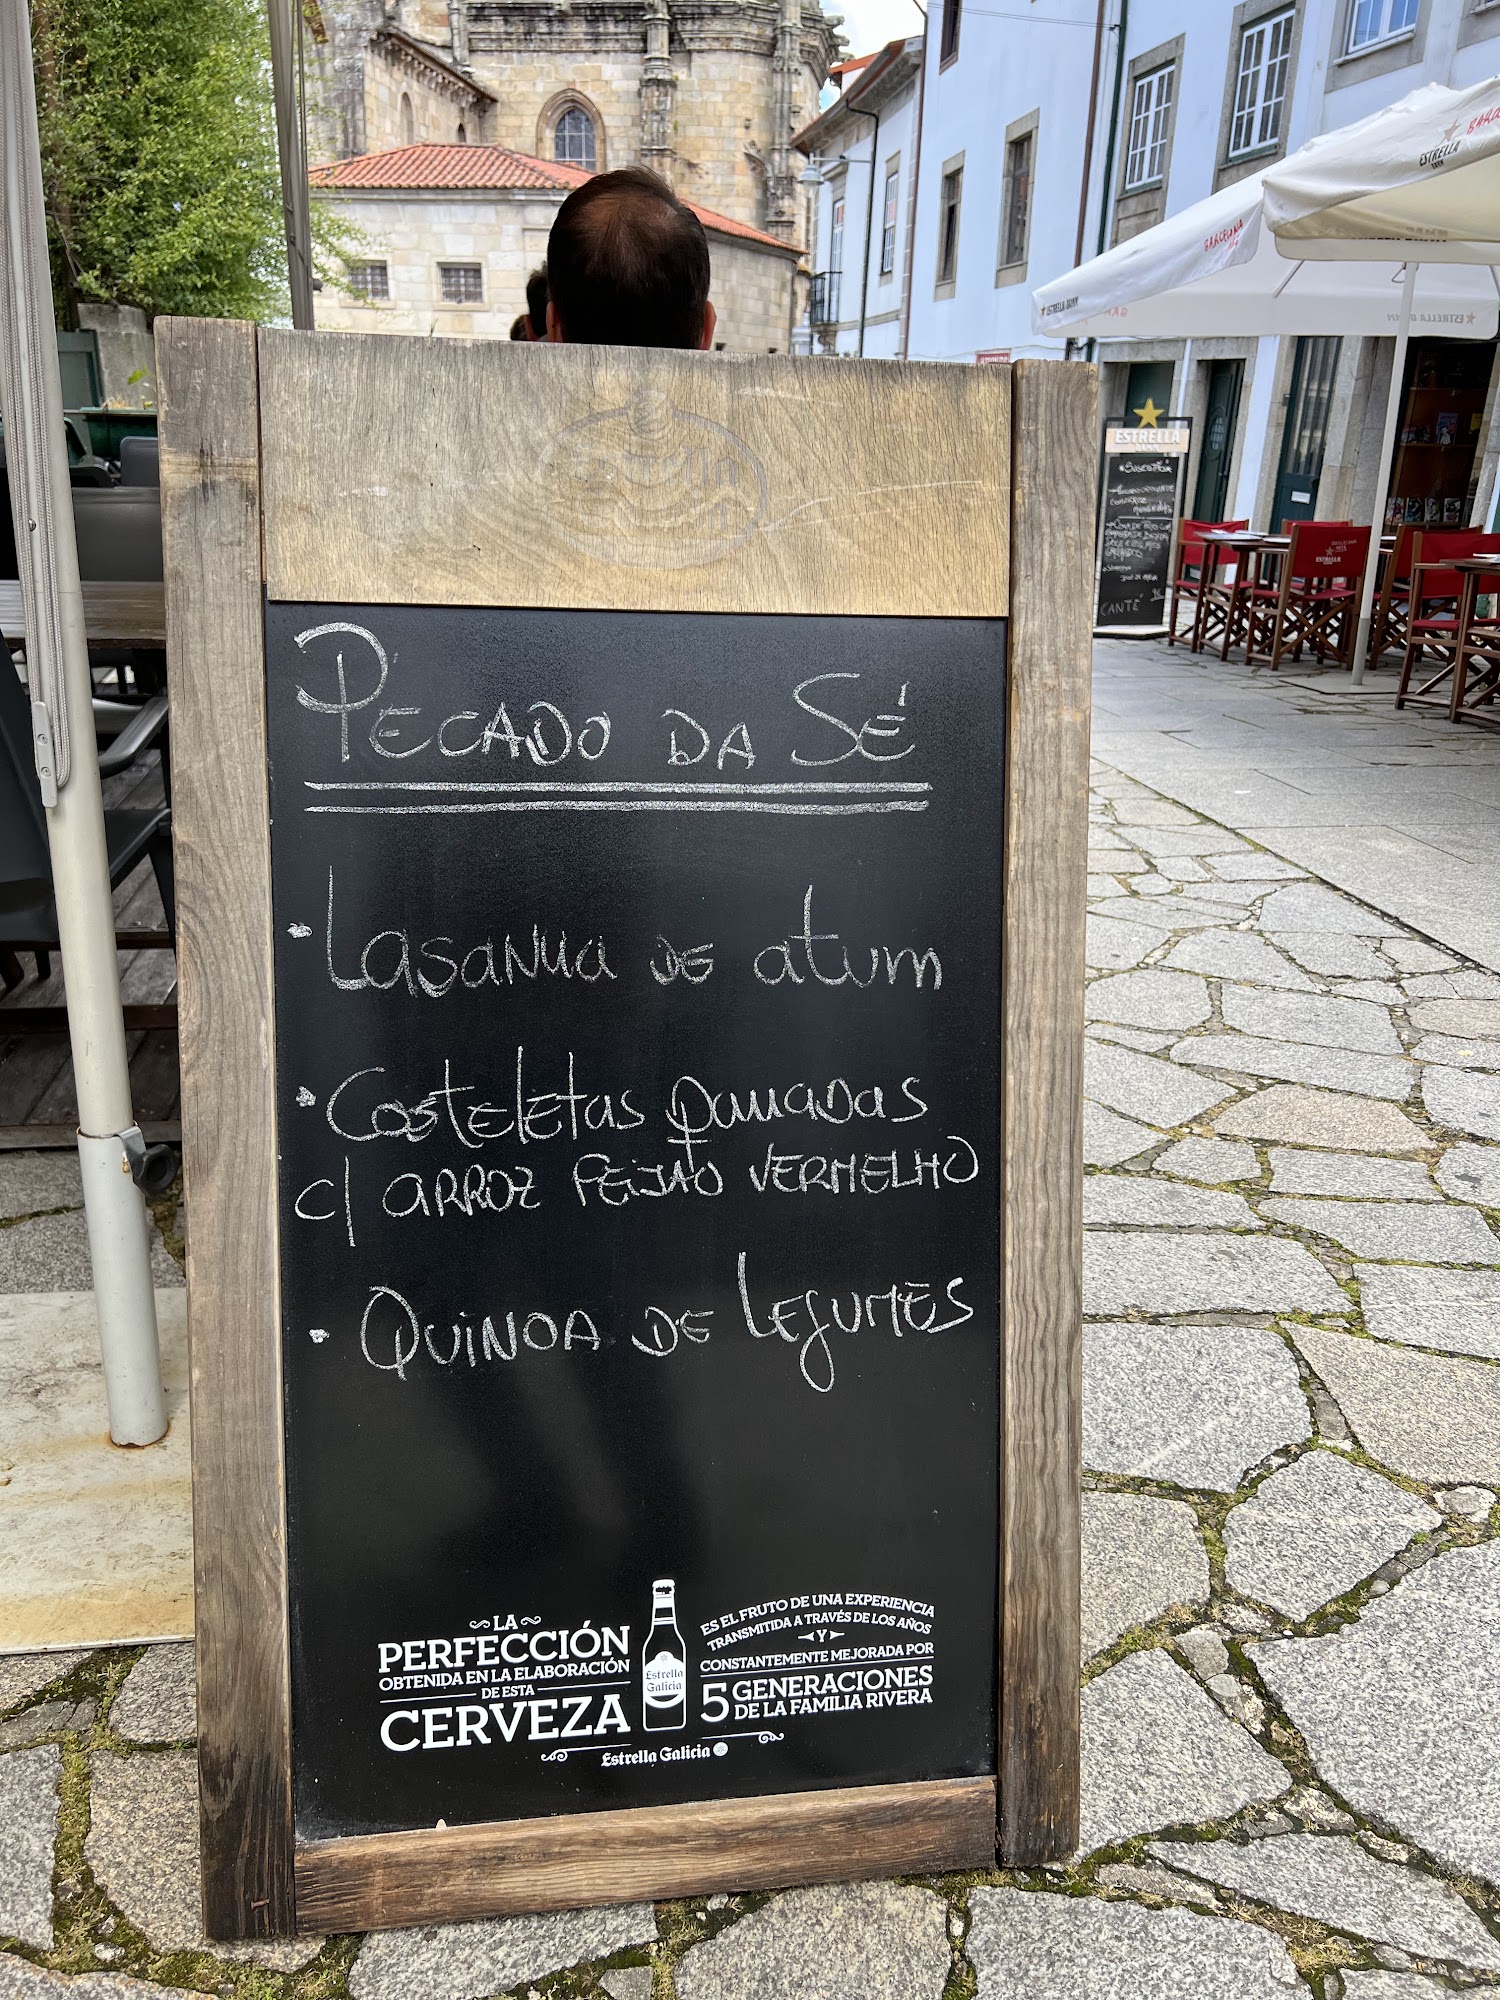 PECADO DA SÉ
• Lasanha de atum
• Costeletas panadas
c/ ARROZ FEIJAO VERMELHO
• QUINOA DE LEGUMES
LA
PERFECCIÓN
OBTENIDA EN LA ELABORACIÓN
DE ESTA
CERVEZA
Estrella
Galicia
ES EL FRUTO DE UNA EXPERIENCIA
TRANSMITIDA A TRAVÉS DE LOS AÑOS
Y
CONSTANTEMENTE MEJORADA POR
5 GENERACIONES
DE LA FAMILIA RIVERA
Estrella Galicia
ESTRELLA
CANTÉ
BARCELONA
ESTRELLA DAMM
ESTRELLA
DAMM
ESTRELLA